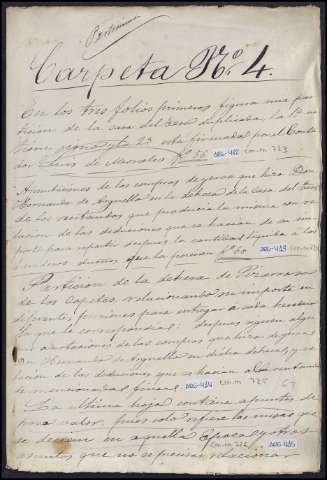 Pertenencia
Carpeta Nº 4.
En los tres folios primeros figura una par
tición de la casa del duplicada, la 1ª no
tiene y 2ª está firmada por el Conta
dor Luis de Morales fº 56 ARG-482 can.m 723
Anotaciones de las compras de yerva que hizo Don
Hernando de Arguello en la dehesa de la Casa del
de los rentandos que producía la misma con re
lución de las deducciones que se hacían de su im
porte para repartir después la cantidad líquida a los
dueños que la poseían fº 60 ARG-483 can.m 724
Partición de la dehesa de
de los Capetos, relacionando su importe en
diferentes porciones para entregar a cada heredero
lo que le correspondía: después siguen algu
nas anotaciones de las compras que hizo de yerva
Don Hernando de Arguello en dicha dehesa, y re
lación de las deducciones que se hacían a los
mencionadas fincas ARG-484 can.m 725 67
La última hoja contiene apuntes de
poco valor, pues solo refiere las misas que
se decían en aquella época y otros
asuntos que no se precisa relacionar. can.m 726 ARG-485